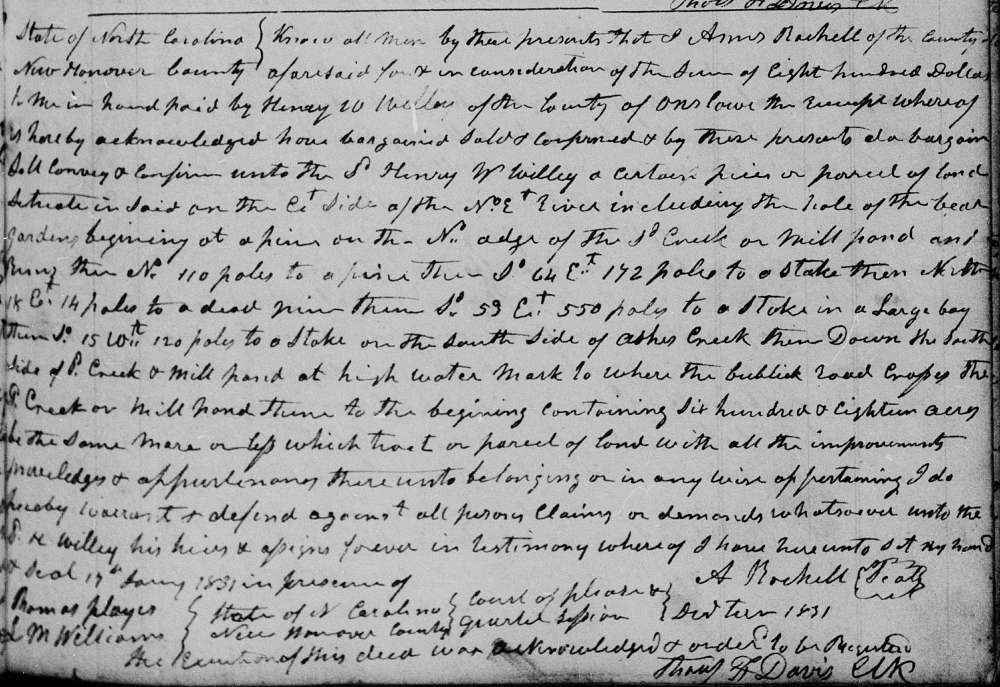 Thos F Davis Clk
State of North Carolina } Know all men by these presents that I Amos Rochell of the County
New Hanover County aforesaid for & in consideration of the Sum of Eight hundred Dollars
to me in hand paid by Henry W Willey of the County of Onslow the receipt whereof
is hereby acknowledged have bargained Sold & Confirmed & by these presents do bargain
Sell Convey & Confirm unto the Sd Henry W Willey a certain piece or parcel of land
Situate in Said on the Et Side of the No Et River including the of the bear
gardens begining at a pine on the No edge of the Sd Creek or Mill pond and
Runs then No 110 poles to a pine then So 64 Et 172 poles to a Stake then North
18 Et 14 poles to a dead pine then So 53 Et 550 poles to a Stake in a Large bay
then So 15 Wt 120 poles to a Stake on the South Side of ashes Creek then Down the South
side of Sd Creek & Mill pond at high water Mark to where the bublick road Crosses the
Sd Creek or Mill pond thence to the begining containing Six hundred & Eighteen acres
be the Same More or less which tract or parcel of land with all the improvements
& appurtenances thereunto belonging or in any wise appertaining I do
hereby warrant & defend against all persons Claims or demands whatsoever unto the
Sd H Willey his hiers & assigns forever in testimony whereof I have hereunto Set my hand
& Seal 17th Jany 1831 in presence of A Rochell {Seal}
Thomas player { State of N Carolina { Court of pleas & } Decr term 1831
L M Williams { New Hanover County { quarter Session
the Execution of this deed was acknowledged & orderd to be Registerd
Thos F Davis Clk